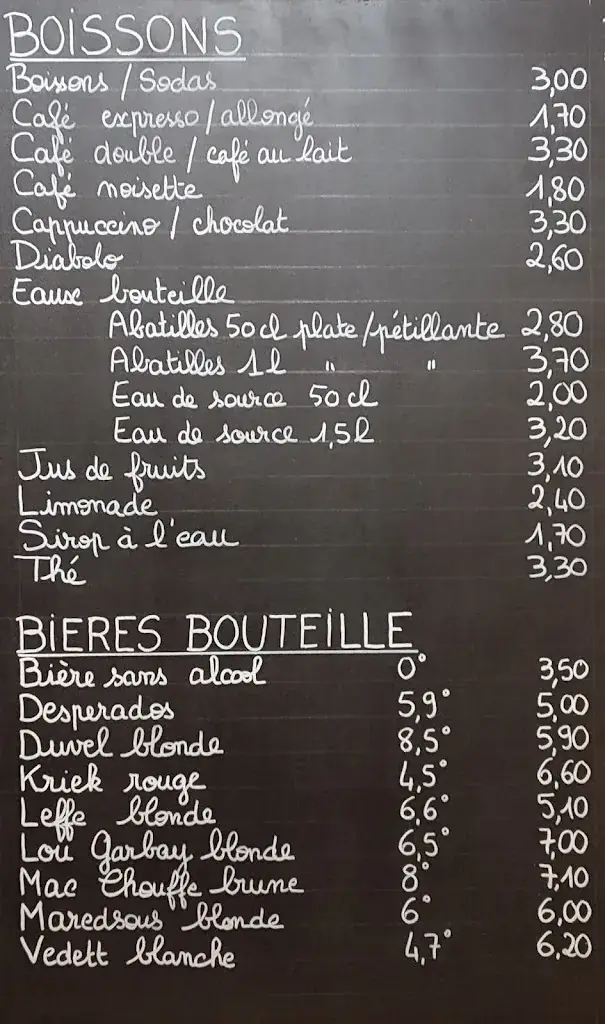 BOISSONS
Boissons / Sodas 3,00
Café expresso / allongé 1,70
Café double / café au lait 3,30
Café noisette 1,80
Cappuccino / chocolat 3,30
Diabolo 2,60
Eaux bouteille
Abatilles 50cl plate/pétillante 2,80
Abatilles 1l " " 3,70
Eau de source 50 cl 2,00
Eau de source 1,5l 3,20
Jus de fruits 3,10
Limonade 2,40
Sirop à l'eau 1,70
Thé 3,30
BIERES BOUTEILLE
Bière sans alcool 0° 3,50
Desperados 5,9° 5,00
Duvel blonde 8,5° 5,90
Kriek rouge 4,5° 6,60
Leffe blonde 6,6° 5,10
Loü Garbay blonde 6,5° 7,00
Mac Chouffe brune 8° 7,10
Maredsous blonde 6° 6,00
Vedett blanche 4,7° 6,20